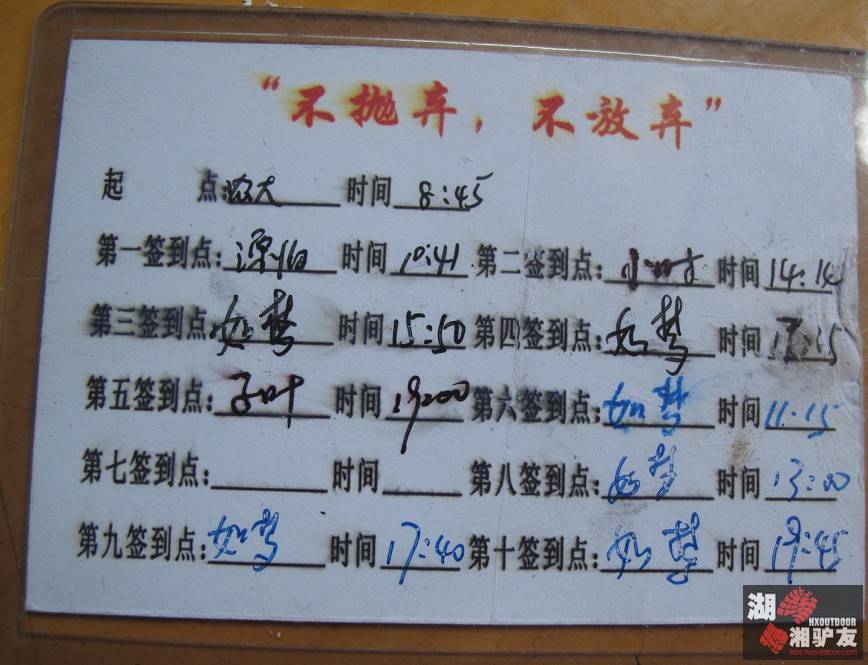 “不抛弃，不放弃”
起 点:农大 时间 8:45
第一签到点: 时间 10:41 第二签到点: 时间 14:14
第三签到点 如梦 时间 15:50 第四签到点: 如梦 时间 :15
第五签到点: 子叶 时间 19:00 第六签到点: 如梦 时间 11:15
第七签到点: 时间 第八签到点: 如梦 时间 13:00
第九签到点: 如梦 时间 17:40 第十签到点: 如梦 时间 19:45
湖湘驴友
HXOUTDOOR
bbs.hxoutdoor.com